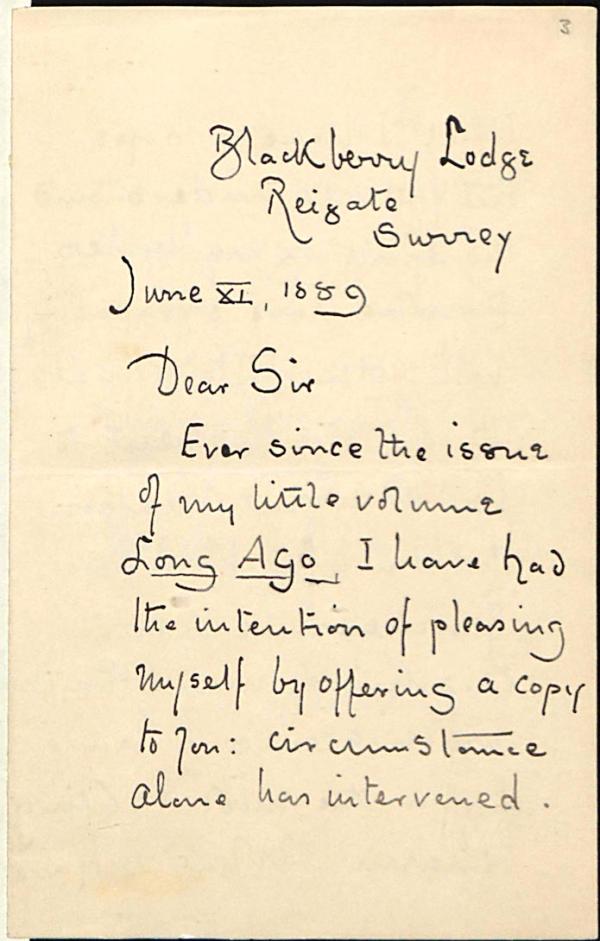 3
Blackberry Lodge
Reigate
Surrey
June XI, 1889
Dear Sir
Ever since the issue
of my little volume
Long Ago, I have had
the intention of pleasing
myself by offering a copy
to you: circumstance
alone has intervened.